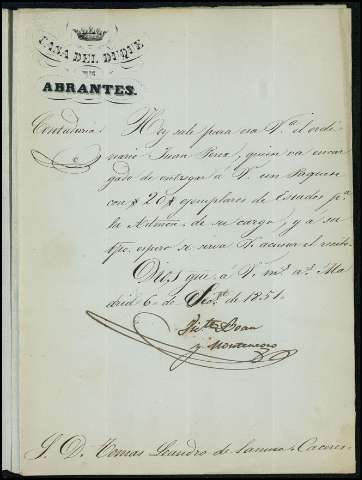 CASA DEL DUQUE
DE
ABRANTES.
Contaduria. Hoy sale para esa V.ª el ordi
nario Juan Perez, quien va encar
gado de entregar á V. un Paquete
con 20 ejemplares de Estados p.ª
la Admon. de su cargo, y á su
tpo. espero se sirva V. acusar el recibo.
Dios gue. á V. m.s a.s Ma
drid 6 de de 1851.
y Montenegro
S. D. Tomas Leandro de Caceres.